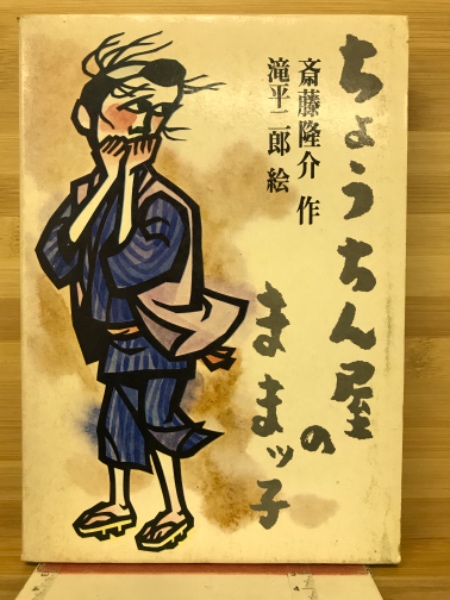 ちょうちん屋の
ままッ子
斎藤隆介 作
滝平二郎 絵